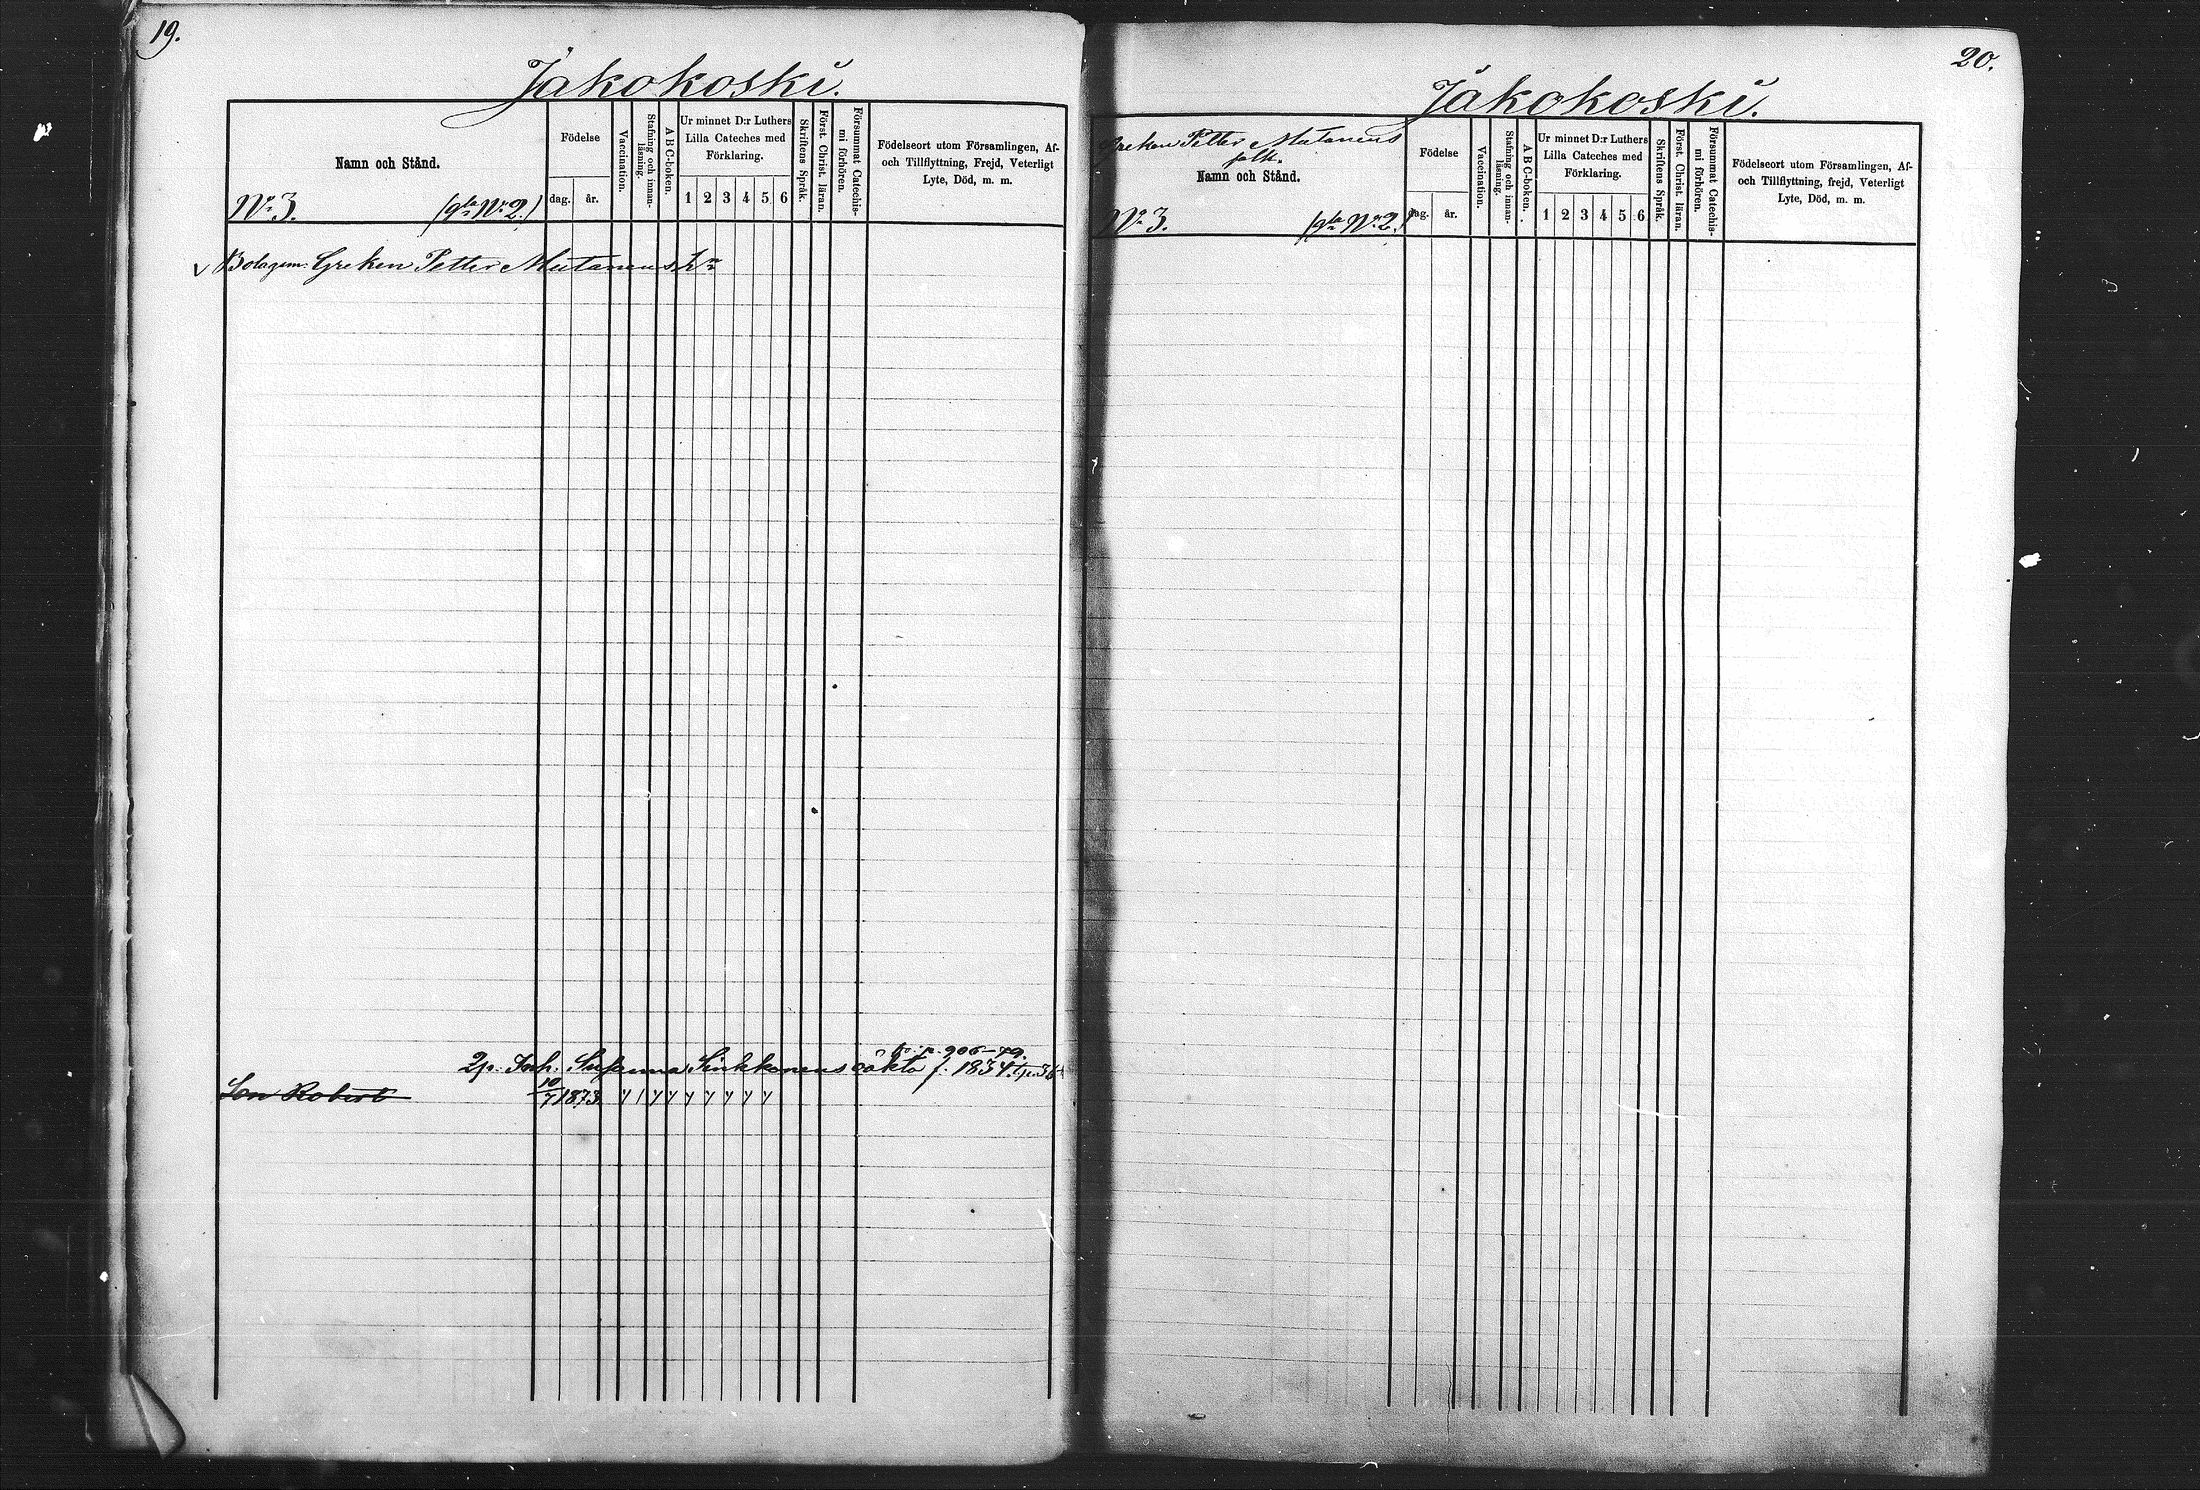 19.
Jakokoski.
Namn och Stånd.
Nr 3. (gla Nr 2.)
Födelse
dag. år.
Vaccination.
Stafning och innan-
läsning.
ABC-boken.
Ur minnet D:r Luthers
Lilla Cateches med
Förklaring.
1 2 3 4 5 6
Skriftens Språk.
Först. Christ. läran.
Försummat Catechis-
mi förhören.
Födelseort utom Församlingen, Af-
och Tillflyttning, Frejd, Veterligt
Lyte, Död, m. m.
√ Bolagsm. Greken Petter Mutanens
p. 906-79.
Inh. Susanna Sinkkonens oäkta f. 1834.
Son Robert 10/7 1873
20.
Jakokoski.
Greken Petter Mutanens
folk.
Namn och Stånd.
Nr 3. (gla Nr 2.)
Födelse
dag. år.
Vaccination.
Stafning och innan-
läsning.
ABC-boken.
Ur minnet D:r Luthers
Lilla Cateches med
Förklaring.
1 2 3 4 5 6
Skriftens Språk.
Först. Christ. läran.
Försummat Catechis-
mi förhören.
Födelseort utom Församlingen, Af-
och Tillflyttning, frejd, Veterligt
Lyte, Död, m. m.